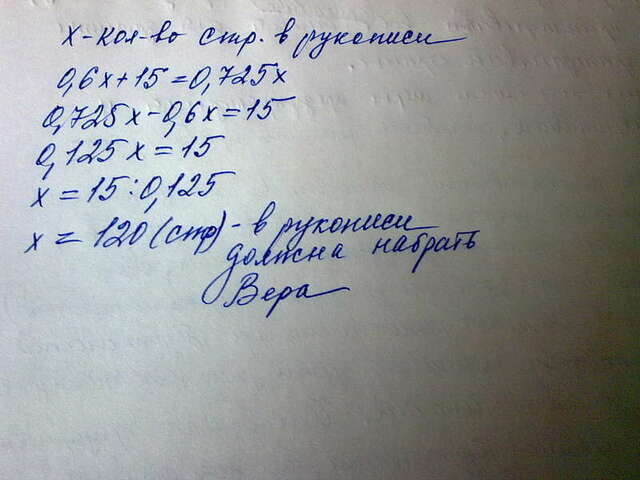 x - кол-во стр. в рукописи
0,6x+15=0,725x
0,725x-0,6x=15
0,125x=15
x=15:0,125
x=120(стр) - в рукописи
должна набрать
Вера